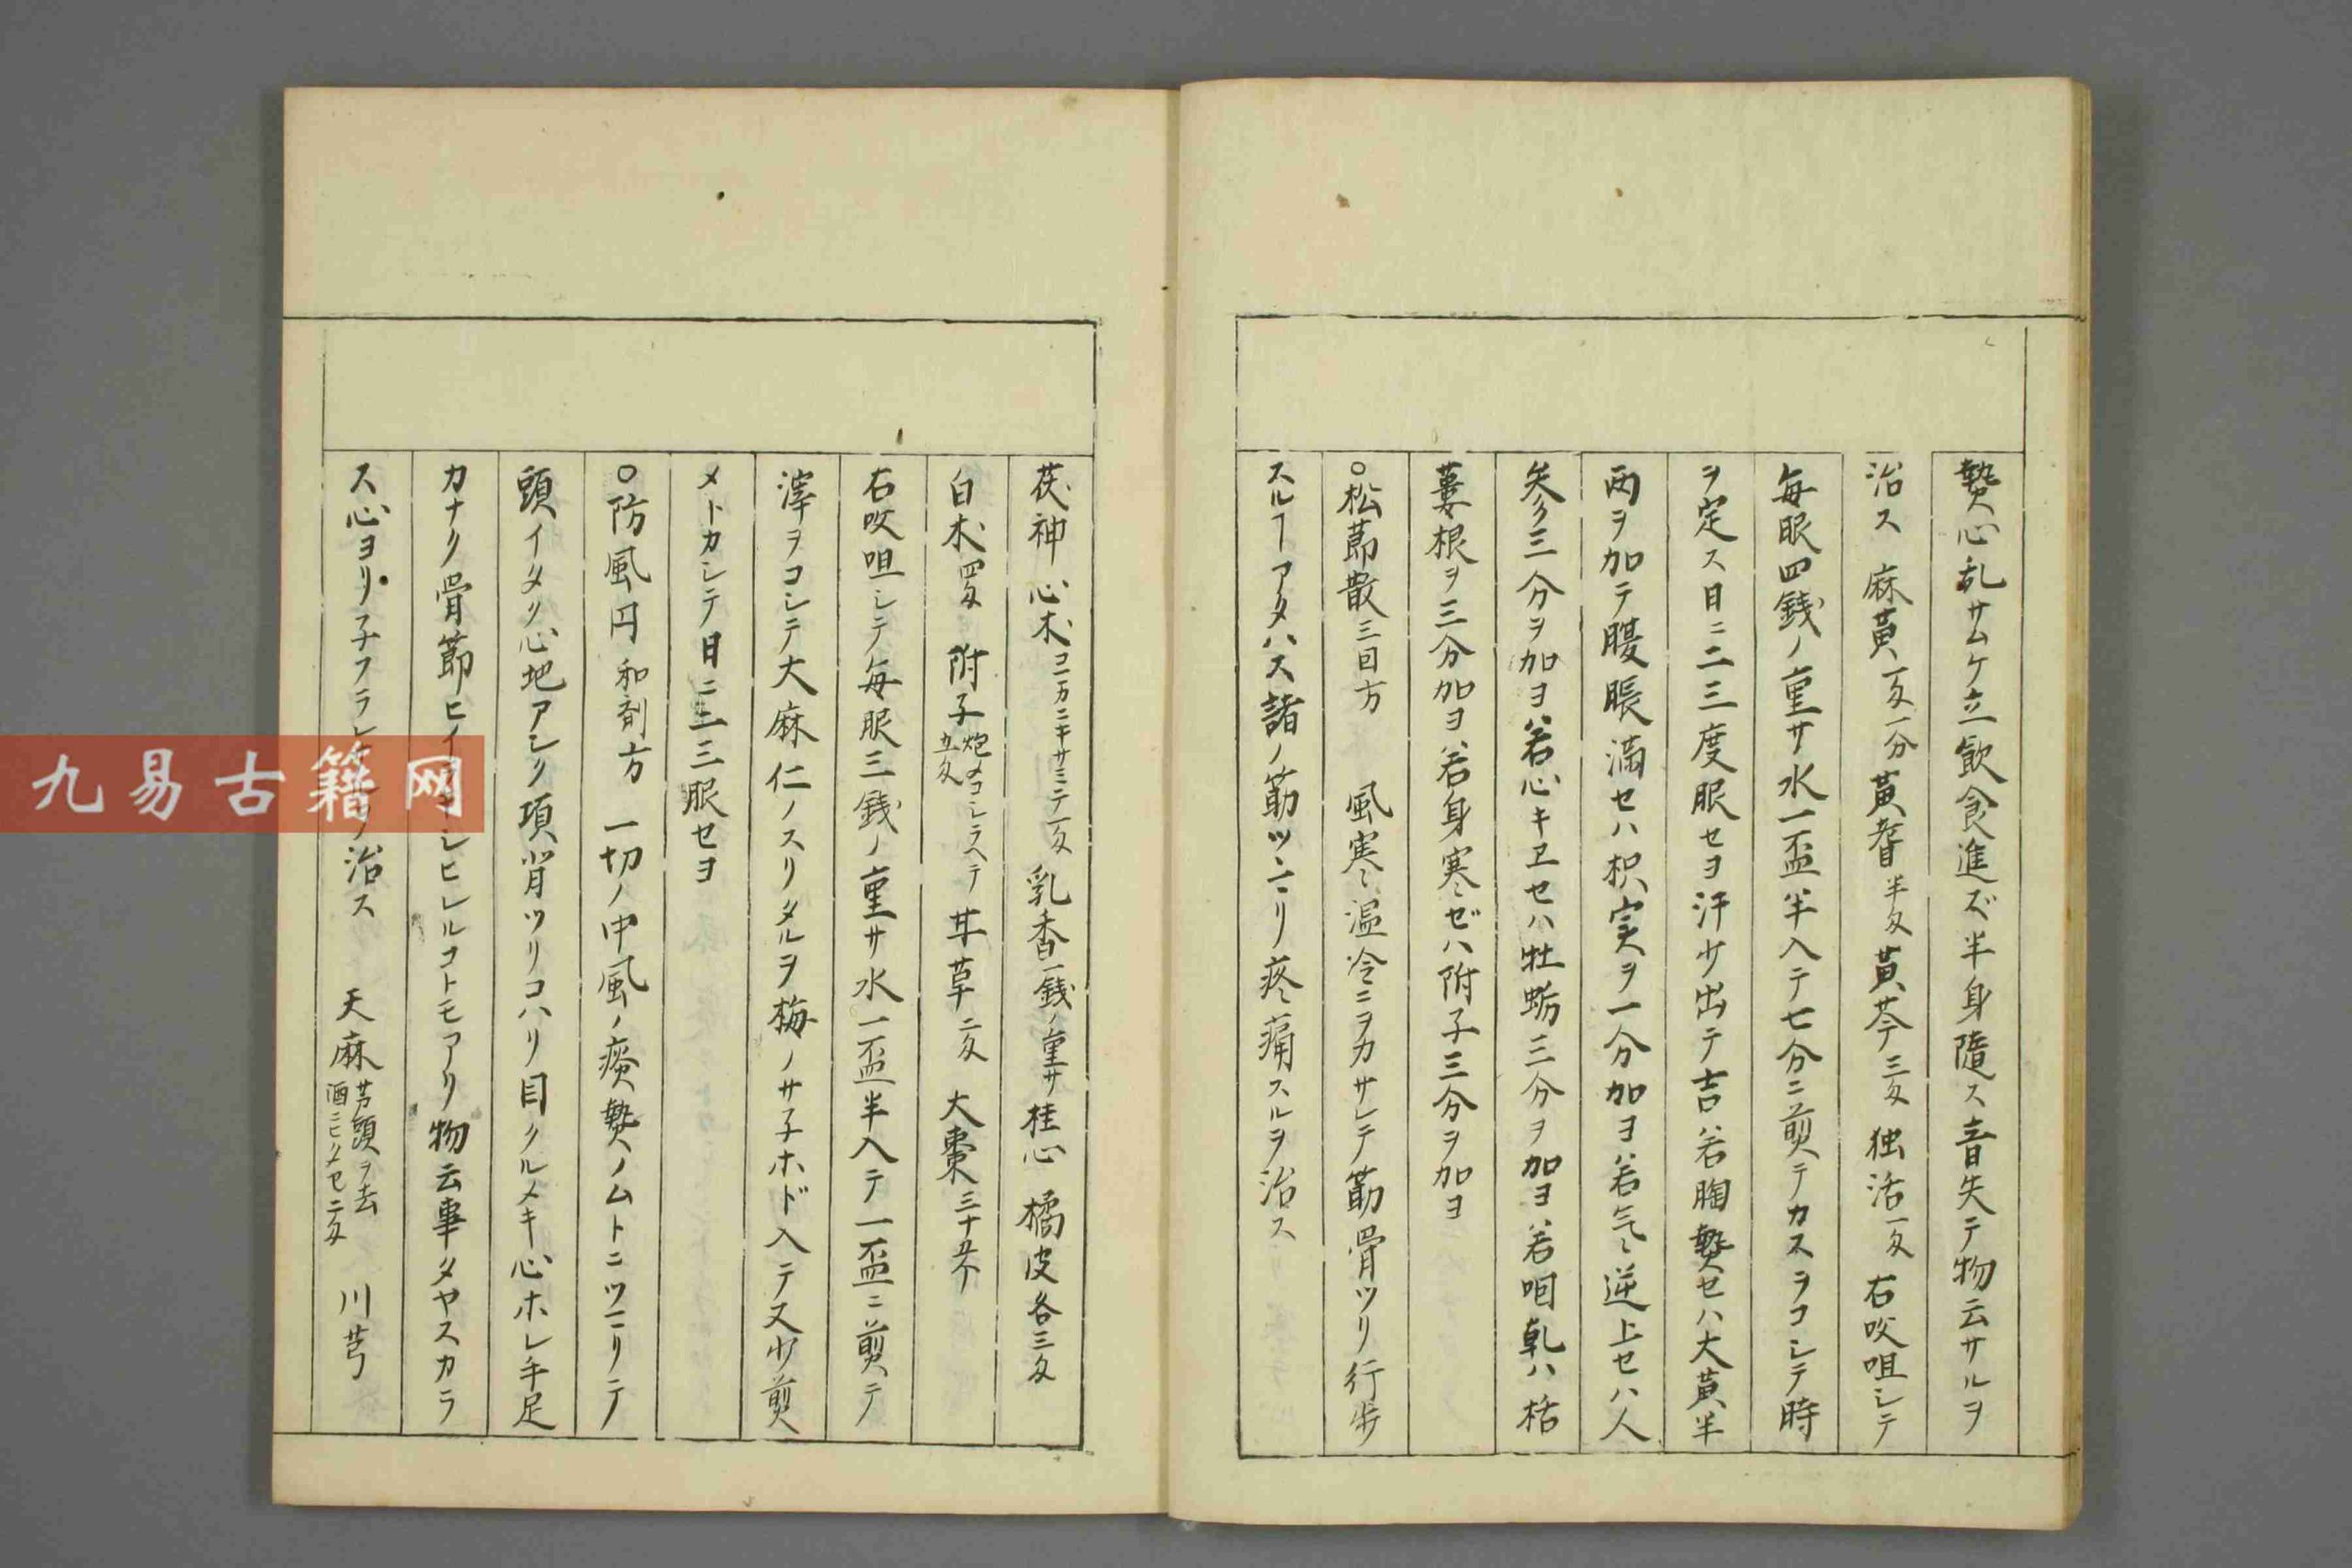 熱心乱サムケ立飲食進ズ半身隨ス音失テ物云サルヲ
治ス 麻黄一匁一分 黄耆半匁 黄芩三匁 独活一匁 右㕮咀シテ
毎服四銭ノ重サ水一盃半入テ七分ニ煎テカスヲコシテ時
ヲ定ス日ニ二三度服セヨ汗少出テ吉若胸熱セハ大黄半
両ヲ加テ腹脹満セハ枳実ヲ一分加ヨ若気逆上セハ人
参三分ヲ加ヨ若心キヱセハ牡蛎三分ヲ加ヨ若咽乾ハ栝
蔞根ヲ三分加ヨ若身寒ゼハ附子三分ヲ加ヨ
○松節散三因方 風寒温冷ニヲカサレテ筋骨ツリ行歩
スルヿアタハス諸ノ筋ツマリ疼痛スルヲ治ス
茯神心木コマカニキサミテ一匁 乳香一銭ノ重サ 桂心 橘皮各三匁
白朮四匁 附子炮メコシラヘテ五匁 甘草二匁 大棗三十五个
右㕮咀シテ毎服三銭ノ重サ水一盃半入テ一盃ニ煎テ
滓ヲコシテ大麻仁ノスリタルヲ梅ノサネホド入テ又少煎
メトカシテ日ニ二三服セヨ
○防風円 和剤方 一切ノ中風ノ痰熱ノムトニツマリテ
頭イタク心地アシク項背ツリコハリ目クルメキ心ホレ手足
カナク骨節ヒイラキシヒレルコトモアリ物云事タヤスカラ
ス心ヨリネフラレ 治ス 天麻苦頭ヲ去酒ニヒタセ二匁 川芎
九易古籍网